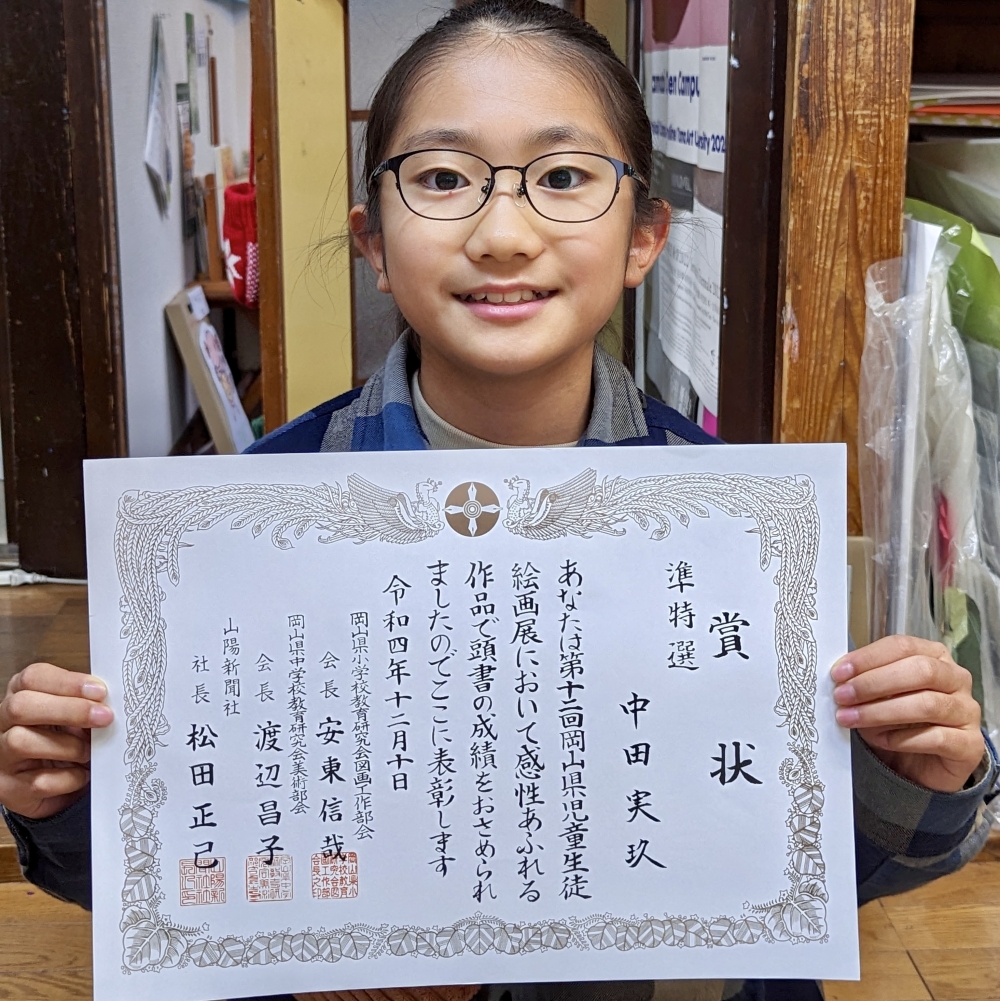 賞状
準特選
中田実玖
あなたは第十二回岡山県児童生徒
絵画展において感性あふれる
作品で頭書の成績をおさめられ
ましたのでここに表彰します
令和四年十二月十日
岡山県小学校教育研究会図画工作部会
会長 安東信哉
岡山県中学校教育研究会美術部会
会長 渡辺昌子
山陽新聞社
社長 松田正己